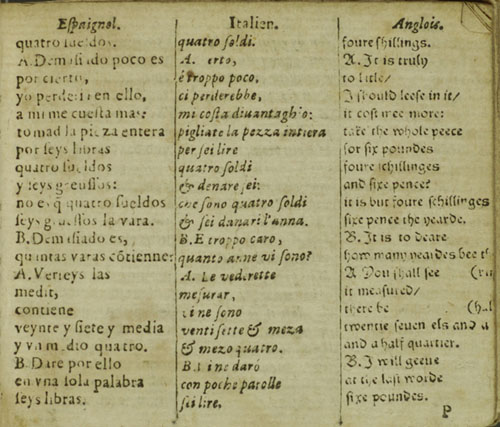 Espaignol.
quatro sueldos.
A. Demasiado poco es
por cierto,
yo perderi en ello,
a mi me cuesta mas:
tomad la pieza entera
por seys libras
quatro sueldos
y seys gruessos:
no es q̃ quatro sueldos
seys gruessos la vara.
B. Demasiado es,
quantas varas cõtiene?
A. Vereys las
medir,
contiene
veynte y siete y media
y va m dio quatro.
B. Dare por ello
en vna sola palabra
seys libras.
Italien.
quatro soldi.
A. erto,
è troppo poco,
ci perderebbe,
mi costa diuantaghʼo:
pigliate la pezza intiera
per sei lire
quatro soldi
& denare sei:
che sono quatro soldi
& sei danari l'anna.
B. E troppo caro,
quanto anne vi sono?
A. Le vederette
mesurar,
i ne sono
venti sette & meza
& mezo quatro.
B. I ine daro
con poche parolle
sei lire.
Anglois.
foure shillings.
A. It is truly
to litle/
I should leese in it/
it cost mee more:
take the whole peece
for six poundes
foure schillinges
and sixe pence?
it is but foure schillinges
sixe pence the yearde.
B. It is to deare
how many yeardes bee th
A You shall see
it measured/
there be
twentie seuen els and a
and a half quartier.
B. I will geeue
at the last worde
sixe poundes.
P